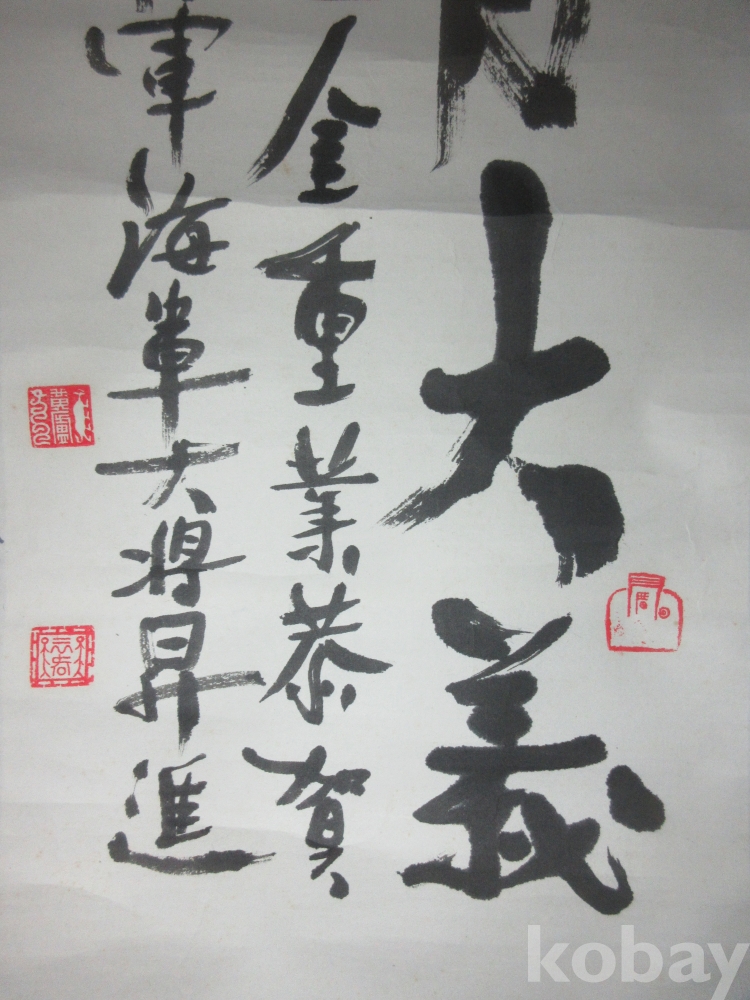 大義
金重業恭賀
軍海軍大将昇進
kobay